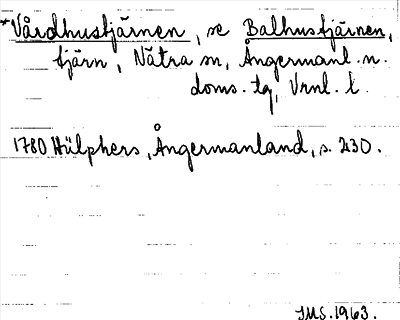 *Vårdhustjärnen, se Balhustjärnen,
tjärn, Nätra sn, Ångermanl. n.
doms. tg, Vrnl. l.
1780 Hülphers, Ångermanland, s. 230.
IMS. 1963.